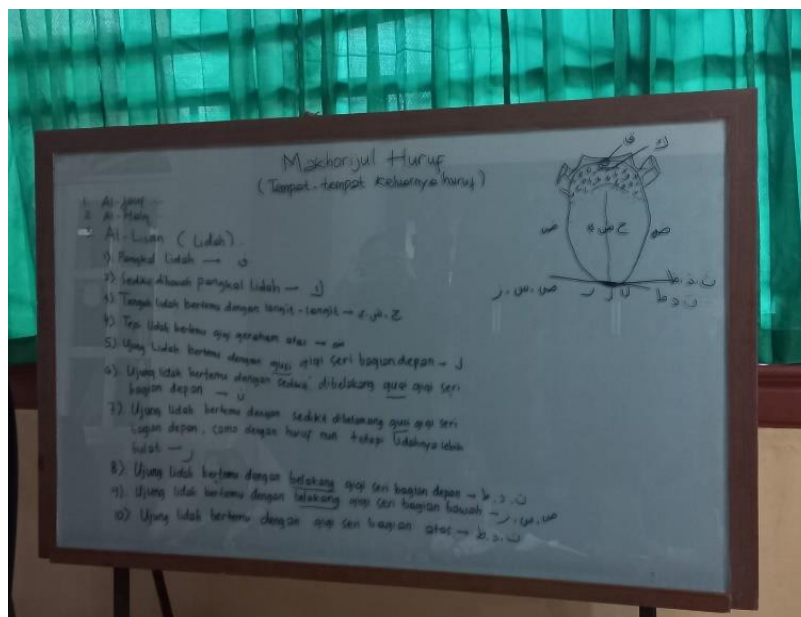 Makhorijul Huruf
(Tempat-tempat keluarnya huruf)
1. Al-Jauf
2. Al-Halq
Al-Lisan (Lidah).
1). Pangkal Lidah → ق
2). Sedikit dibawah pangkal lidah → ك
3) Tengah lidah bertemu dengan langit-langit → ي. ش. ج
4) Tepi lidah bertemu gigi geraham atas → ض
5) Ujung Lidah bertemu dengan gusi gigi seri bagian depan → ل
6). Ujung lidah bertemu dengan sedikit dibelakang gusi gigi seri
bagian depan → ن
7). Ujung lidah bertemu dengan sedikit dibelakang gusi gigi seri
bagian depan, sama dengan huruf nun tetapi lidahnya lebih
bulat → ر
8). Ujung lidah bertemu dengan belakang gigi seri bagian depan → ط. د. ت
9). Ujung lidah bertemu dengan belakang gigi seri bagian bawah → ز. س. ص
10) Ujung lidah bertemu dengan gigi seri bagian atas →
ق ك
ض ي ش ج ض
ص. س. ز
ر ن ل
ط. د. ت